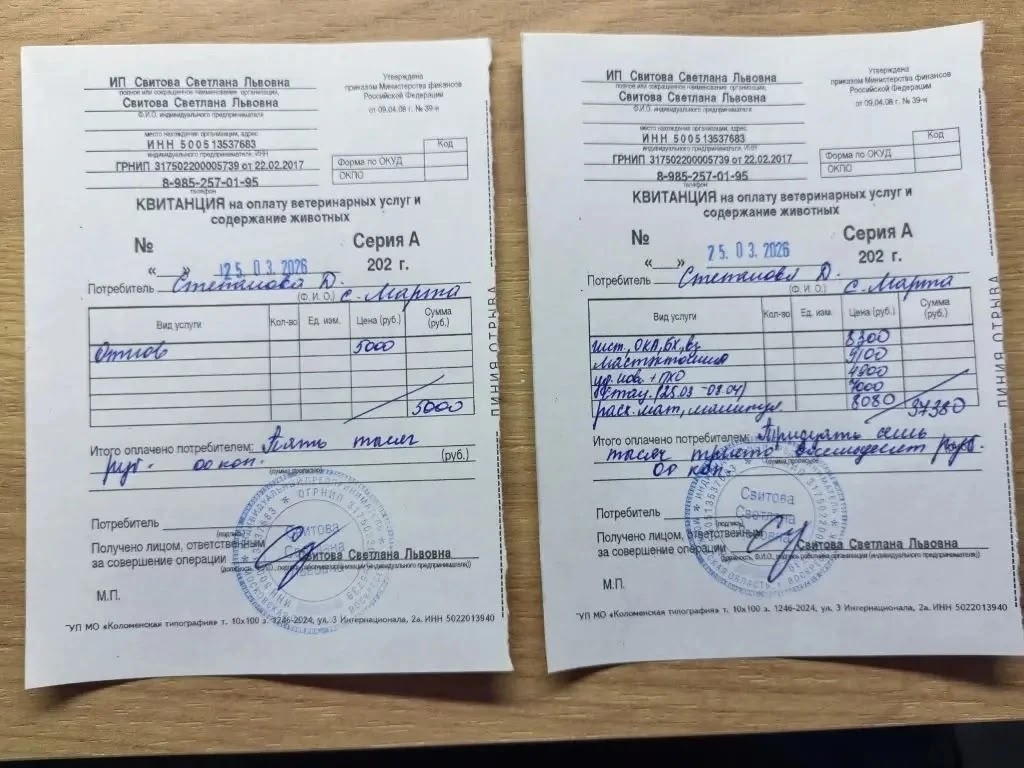 ИП Свитова Светлана Львовна
полное или сокращенное наименование организации,
Свитова Светлана Львовна
Ф.И.О. индивидуального предпринимателя
место нахождения организации, адрес
ИНН 500513537683
индивидуального предпринимателя, ИНН
ГРНИП 317502200005739 от 22.02.2017
8-985-257-01-95
телефон
Утверждена
приказом Министерства финансов
Российской Федерации
от 09.04.08 г. № 39-н
Код
Форма по ОКУД
ОКПО
КВИТАНЦИЯ на оплату ветеринарных услуг и
содержание животных
№ Серия А
«__» 25.03.2026 202 г.
Потребитель Степанова Д.
(Ф.И.О.) с. Марта
Вид услуги Кол-во Ед. изм. Цена (руб.) Сумма (руб.)
Отлов 5000
5000
Итого оплачено потребителем: Пять тысяч
руб. 00 коп. (руб.)
(сумма прописью)
Потребитель
(подпись)
Получено лицом, ответственным
за совершение операции Свитова Светлана Львовна
(должность, Ф.И.О., подпись работника организации (индивидуального предпринимателя))
М.П.
УП МО «Коломенская типография» т. 10х100 з. 1246-2024, ул. 3 Интернационала, 2а. ИНН 5022013940
ЛИНИЯ ОТРЫВА
ИП Свитова Светлана Львовна
полное или сокращенное наименование организации,
Свитова Светлана Львовна
Ф.И.О. индивидуального предпринимателя
место нахождения организации, адрес
ИНН 500513537683
индивидуального предпринимателя, ИНН
ГРНИП 317502200005739 от 22.02.2017
8-985-257-01-95
телефон
Утверждена
приказом Министерства финансов
Российской Федерации
от 09.04.08 г. № 39-н
Код
Форма по ОКУД
ОКПО
КВИТАНЦИЯ на оплату ветеринарных услуг и
содержание животных
№ Серия А
«__» 25.03.2026 202 г.
Потребитель Степанова Д.
(Ф.И.О.) с. Марта
Вид услуги Кол-во Ед. изм. Цена (руб.) Сумма (руб.)
гист, ОКА, БХ, 8300
мастэктомия 9100
уд. нов. + ПХО 4900
стац. (25.03 -03.04) 7000
расх. мат, 8080 37380
Итого оплачено потребителем: Тридцать семь
тысяч триста восемьдесят руб.
00 коп.
(сумма прописью)
Потребитель
(подпись)
Получено лицом, ответственным
за совершение операции Свитова Светлана Львовна
(должность, Ф.И.О., подпись работника организации (индивидуального предпринимателя))
М.П.
УП МО «Коломенская типография» т. 10х100 з. 1246-2024, ул. 3 Интернационала, 2а. ИНН 5022013940
ЛИНИЯ ОТРЫВА